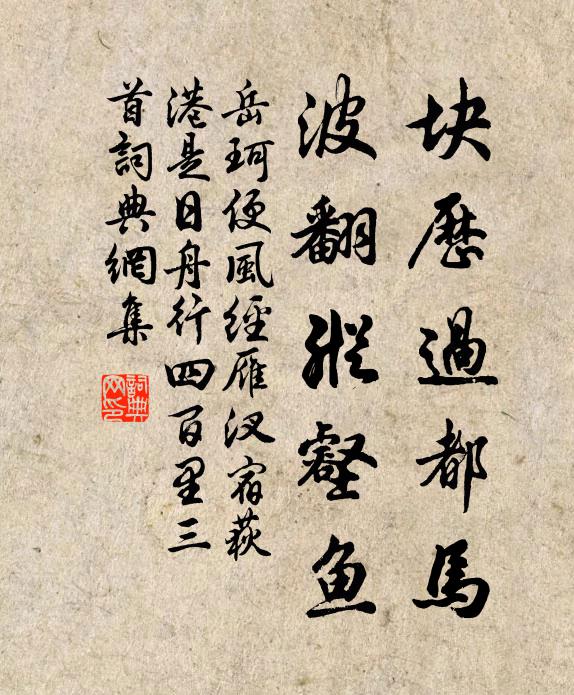 块歷過都馬
波翻縱壑魚
岳珂便風經雁汊宿荻
港是日舟行四百里三
首詞典網集
詞典网印